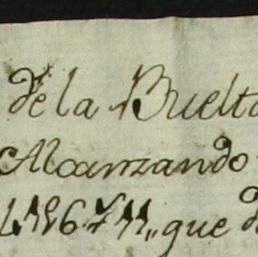 de la Buelta
Alcanzando
que d